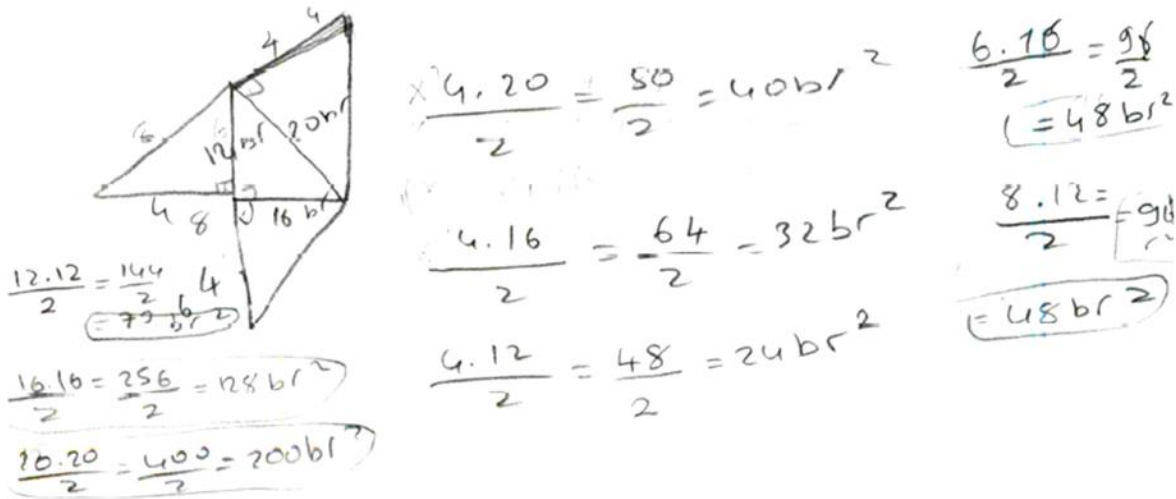 4
4
6
12 br
20 br
4 8
16 br
4
6
12.12/2 = 144/2
= 72 br²
16.16/2 = 256/2 = 128 br²
20.20/2 = 400/2 = 200 br²
4.20/2 = 80/2 = 40 br²
4.16/2 = 64/2 = 32 br²
4.12/2 = 48/2 = 24 br²
6.16/2 = 96/2
= 48 br²
8.12/2 =
= 48 br²